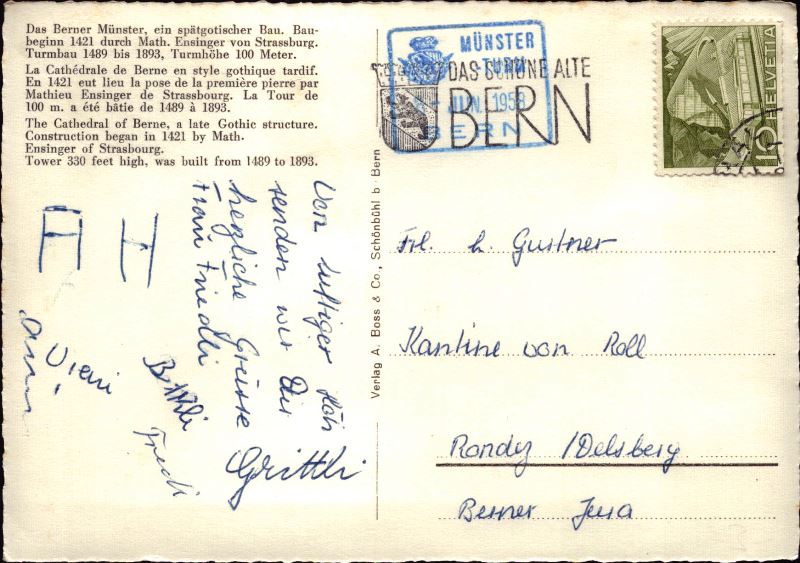 Das Berner Münster, ein spätgotischer Bau. Bau-
beginn 1421 durch Math. Ensinger von Strassburg.
Turmbau 1489 bis 1893, Turmhöhe 100 Meter.
La Cathédrale de Berne en style gothique tardif.
En 1421 eut lieu la pose de la première pierre par
Mathieu Ensinger de Strassbourg. La Tour de
100 m. a été bâtie de 1489 à 1893.
The Cathedral of Berne, a late Gothic structure.
Construction began in 1421 by Math.
Ensinger of Strasbourg.
Tower 330 feet high, was built from 1489 to 1893.
MÜNSTER
TURM
JUN. 1958
BERN
DAS SCHÖNE ALTE
BERN
HELVETIA
10
Von luftiger Höh
senden wir Dir
herzliche Grüsse
Frau Friedli
Grittli
A H
Vreni
Fredi
Verlag A. Boss & Co., Schönbühl b. Bern
Frl. h. Gurtner
Kantine von Roll
Rondez /Delsberg
Berner Jura